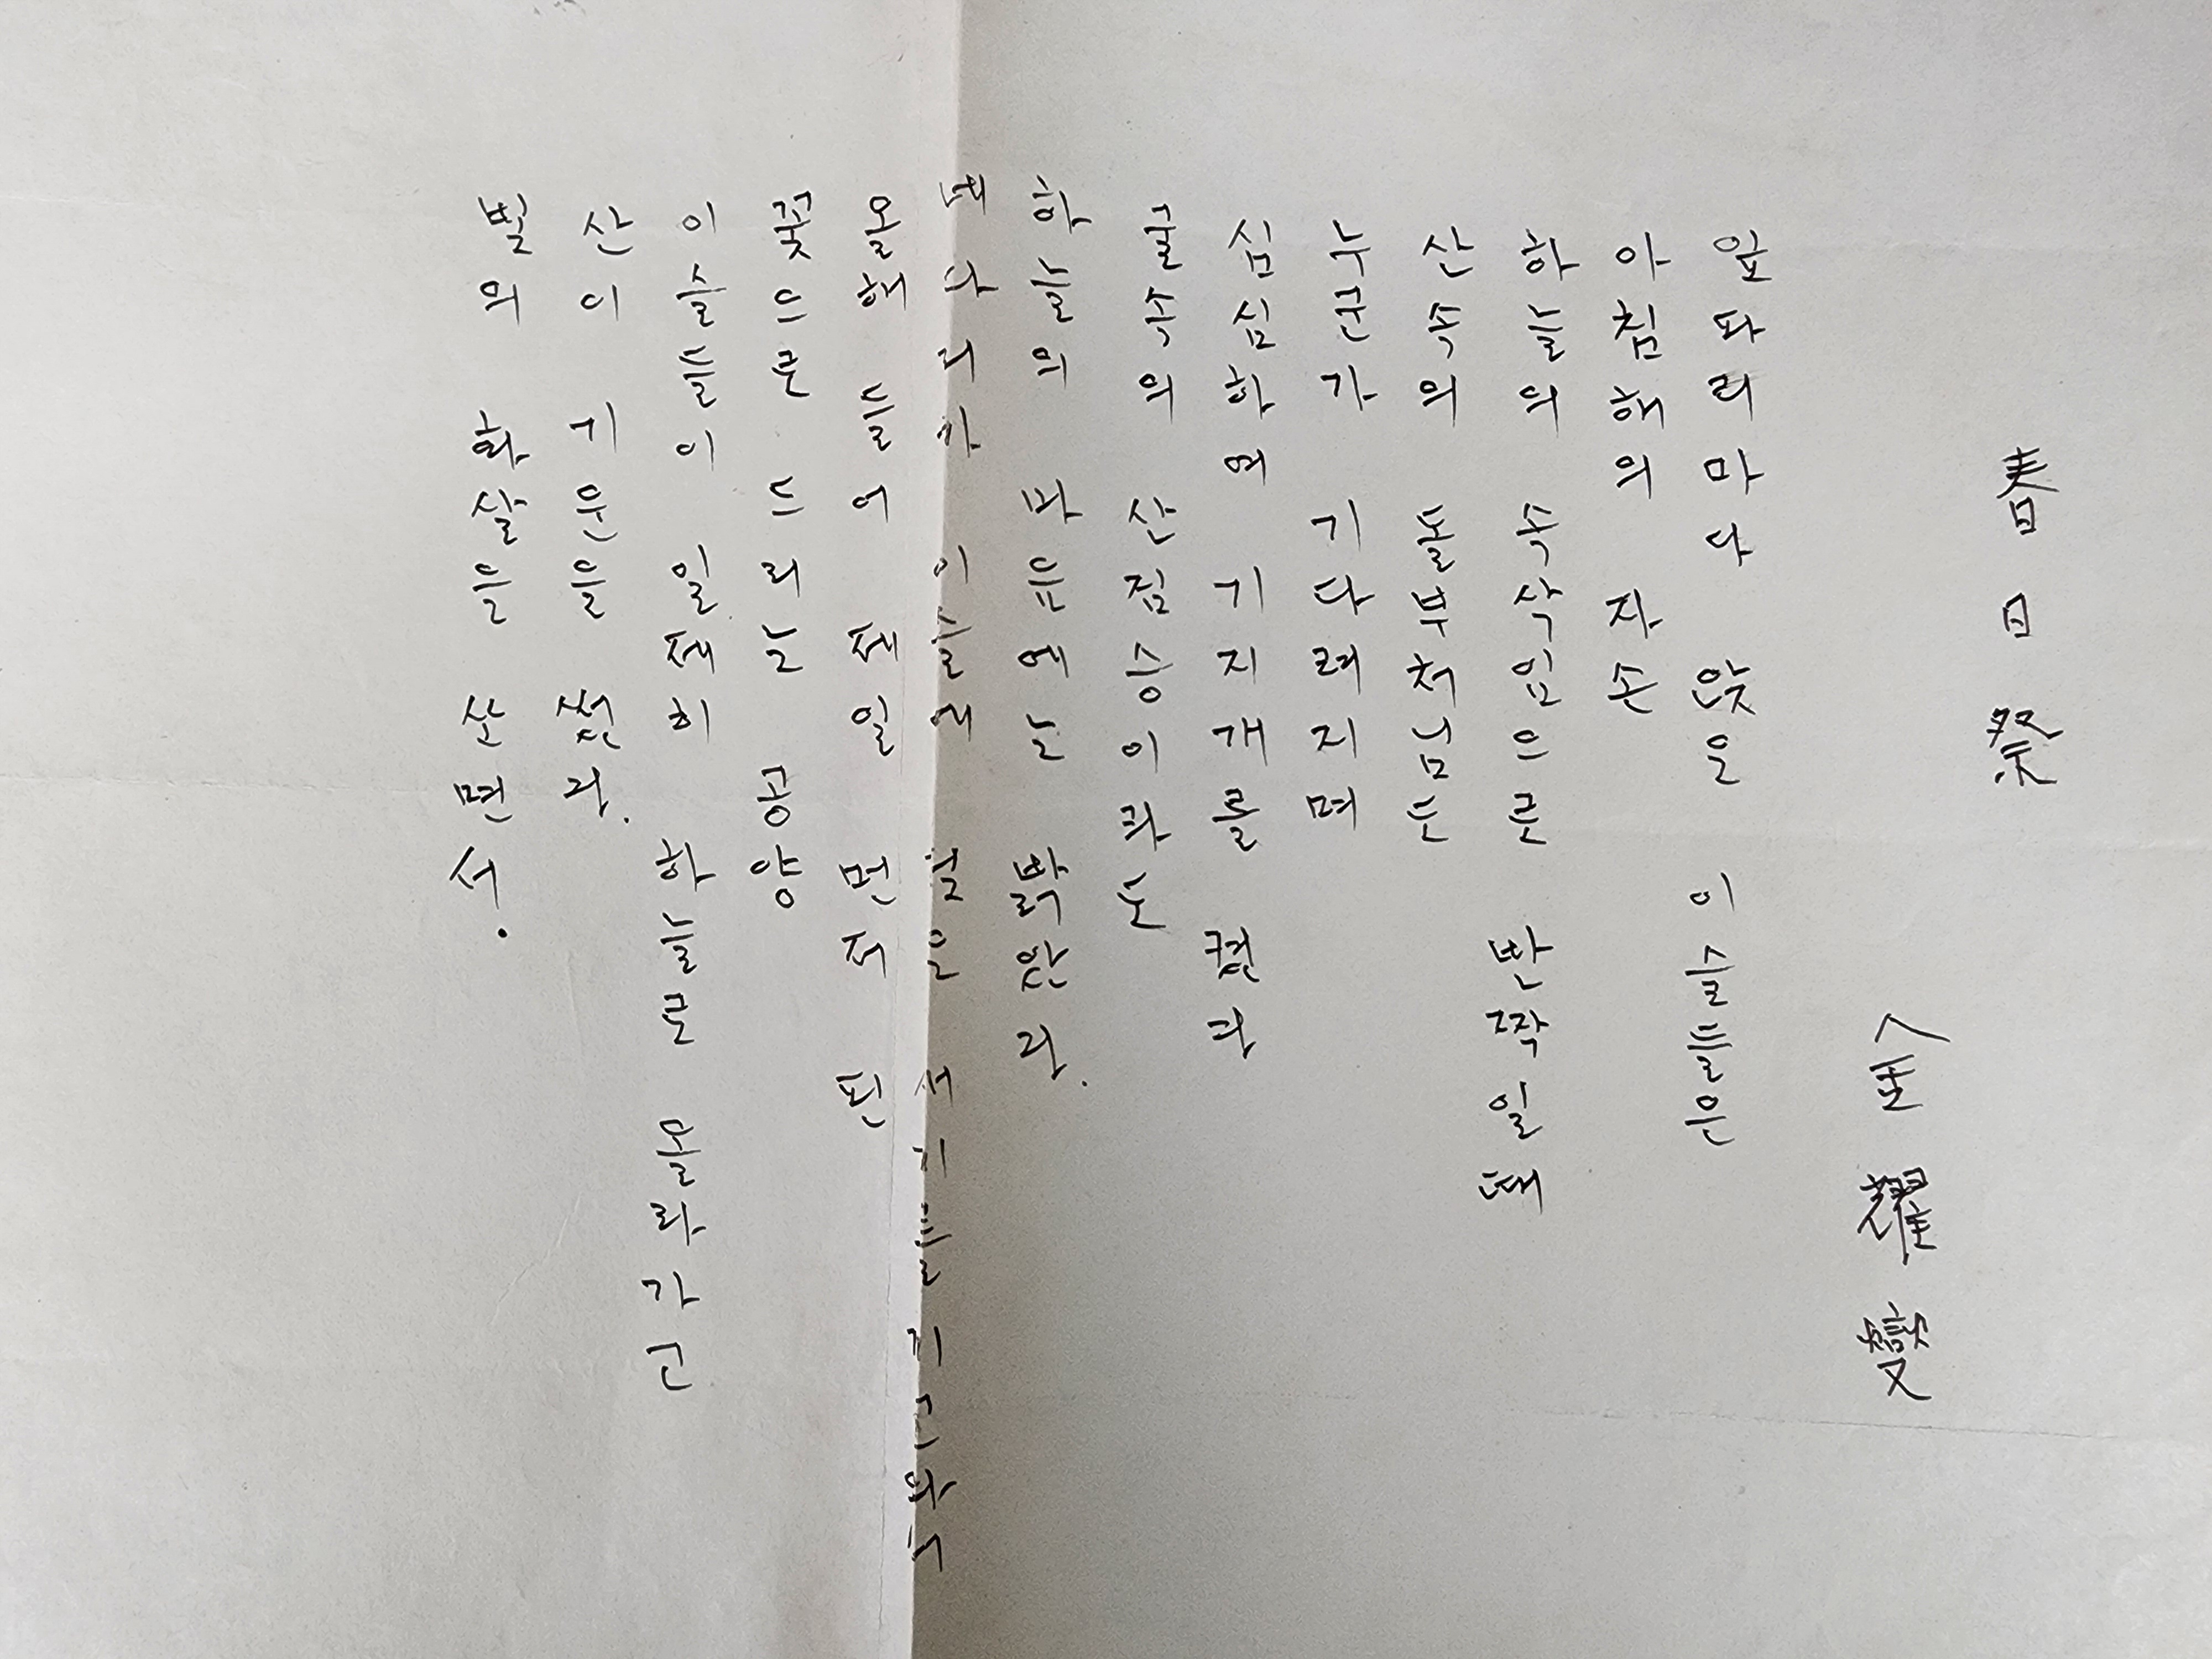 春日祭
金耀燮
잎파리마다 앉은 이슬들은
아침해의 자손
하늘의 속삭임으로 반짝일 때
산속의 돌부처님도
누군가 기다려지며
심심하여 기지개를 켰다
굴속의 산짐승이라도
하늘의 마음에는 밝았다.
이슬에 서기를 지고와서
올해 들어 제일 먼저 된
꽃으로 드리는 공양
이슬들이 일제히 하늘로 올라가고
산이 기운을 썼다.
빛의 화살을 쏘면서.